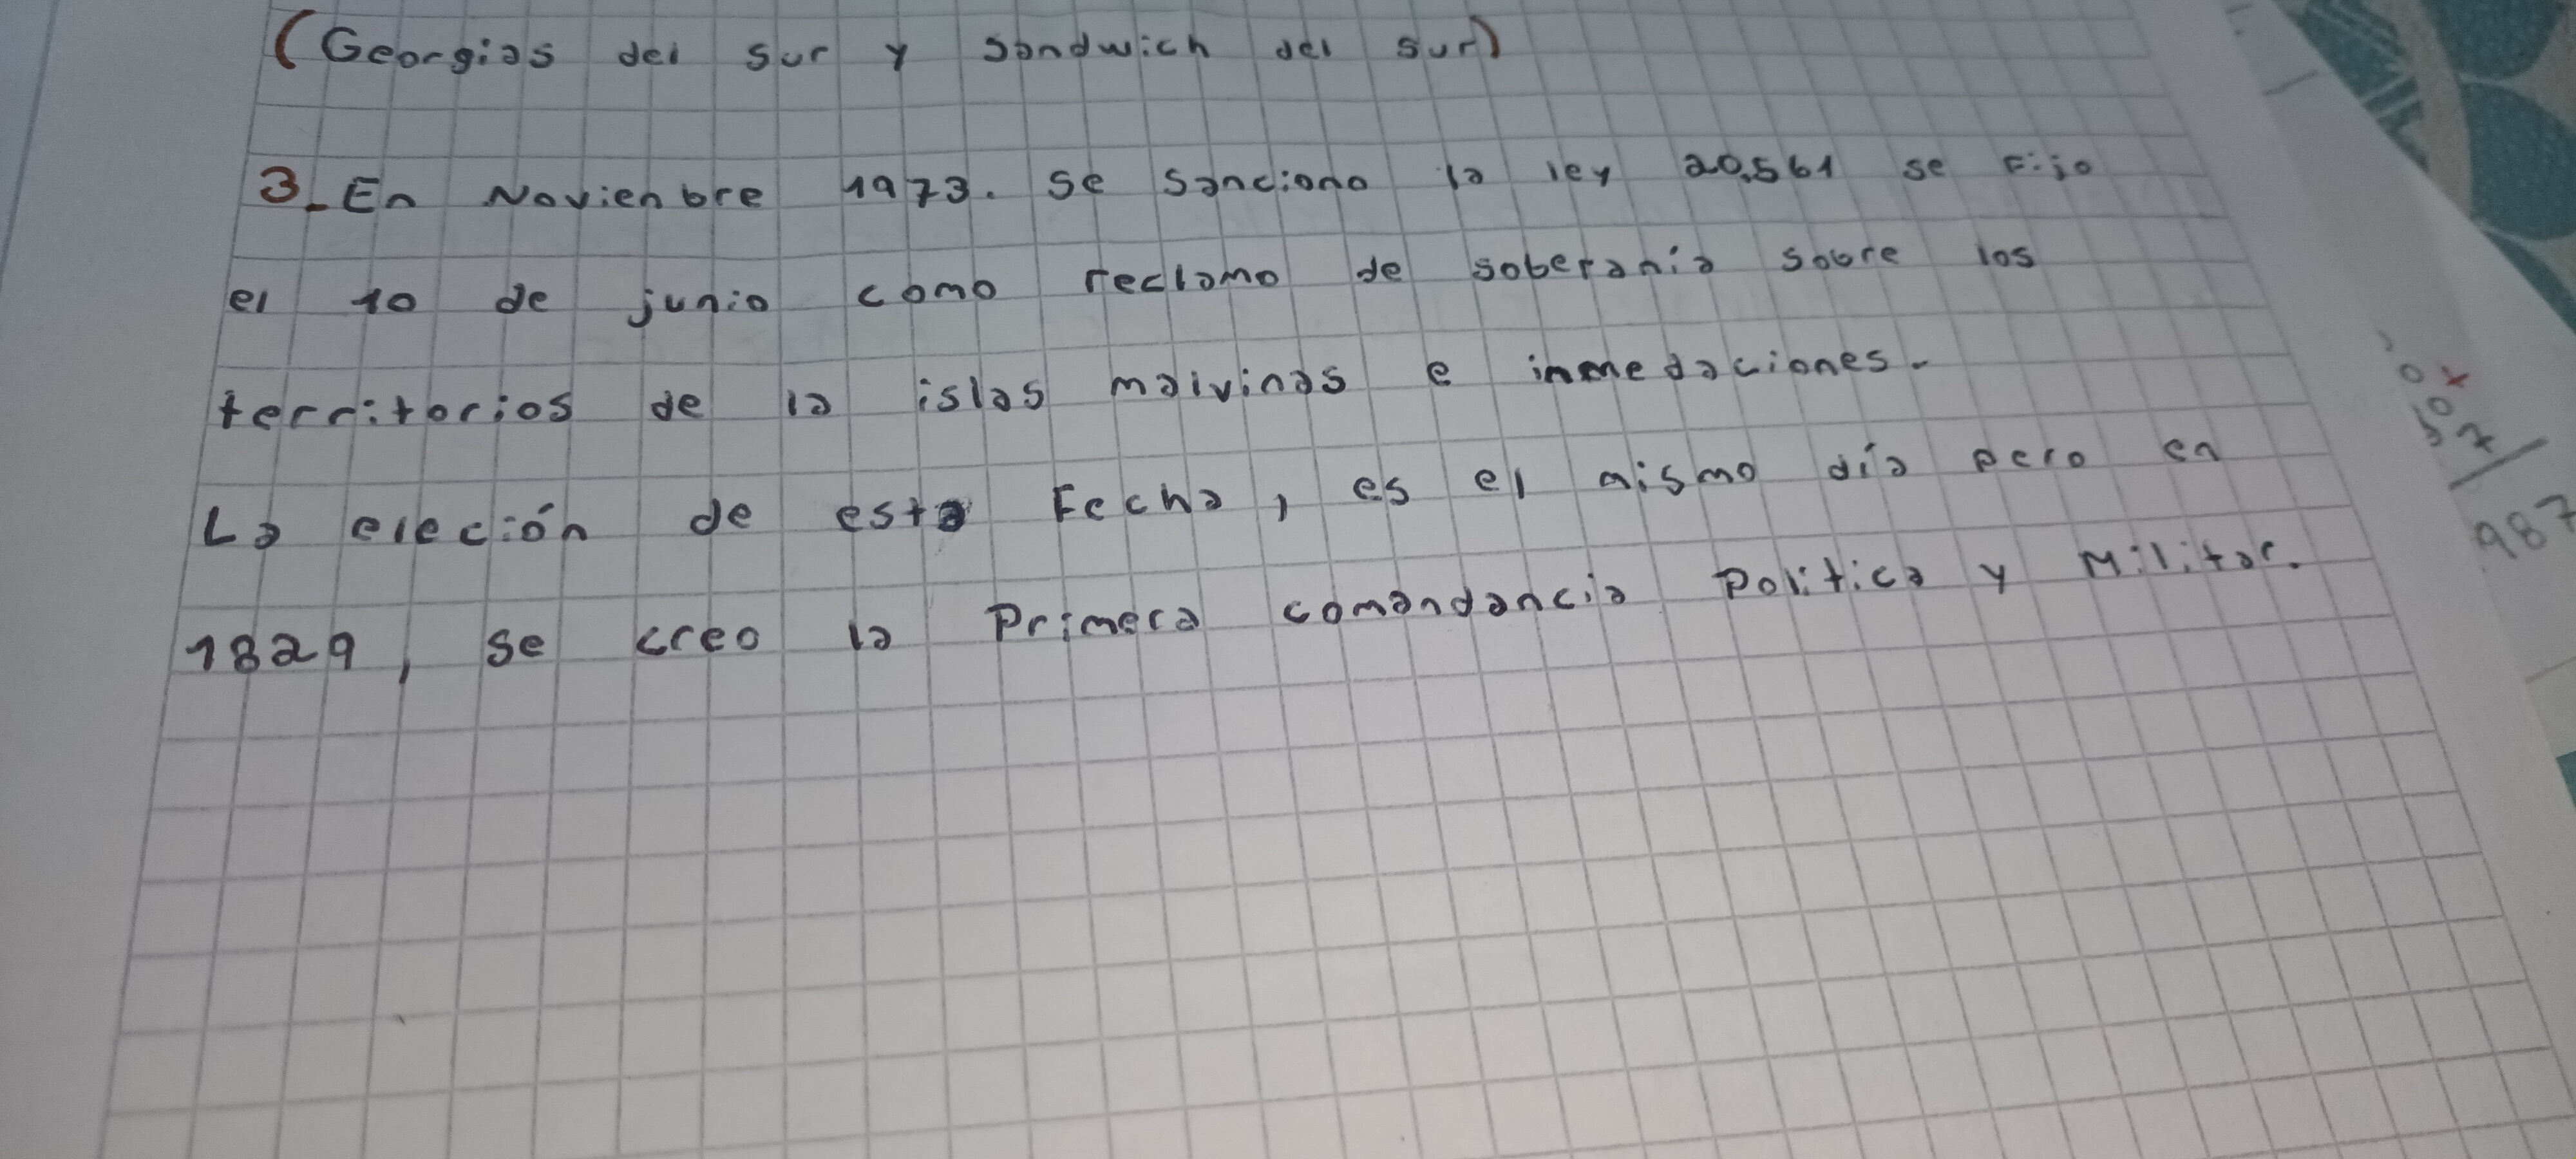 (Georgias del sur y Sandwich del sur)
3_ En Novienbre 1973. se sanciono la ley 20.561 se Fijo
el 10 de junio como reclamo de soberania sobre los
territorios de la islas malvinas e inmedaciones.
La eleción de esta Fecha, es el mismo día pero en
1829, se creo la Primera comandancia Politica y Militar.
987